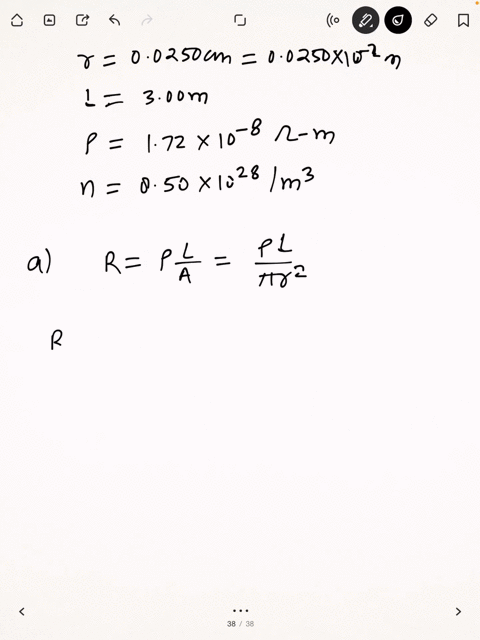 r = 0.0250 cm = 0.0250×10⁻² m
L = 3.00 m
ρ = 1.72 × 10⁻⁸ Ω-m
n = 8.50 × 10²⁸ /m³
a) R = ρ L/A = ρL/πr²
R
38 / 38